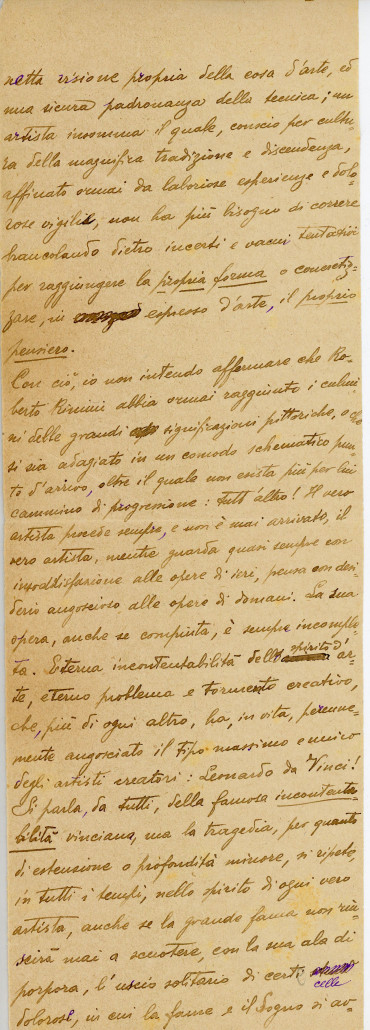 netta visione propria della cosa d'arte, ed
una sicura padronanza della tecnica; un
artista insomma il quale, conscio per cultu-
ra della magnifica tradizione e discendenza,
affinato ormai da laboriose esperienze e dolo-
rose vigilie, non ha più bisogno di correre
brancolando dietro incerti e vacui tentativi
per raggiungere la propria forma o concretiz-
zare, in espresso d'arte, il proprio
pensiero.
Con ciò, io non intendo affermare che Ro-
berto Rimini abbia ormai raggiunto i culmi-
ni delle grandi significazioni pittoriche, o che
si sia adagiato in un comodo schematico pun-
to d'arrivo, oltre il quale non esista più per lui
cammino di progressione: tutt'altro! Il vero
artista procede sempre, e non è mai arrivato, il
vero artista, mentre guarda quasi sempre con
insoddisfazione alle opere di ieri, pensa con desi-
derio angoscioso alle opere di domani. La sua
opera, anche se compiuta, è sempre incomple-
ta. Eterna incontentabilità dello spirito d'ar-
te, eterno problema e tormento creativo,
che, più di ogni altro, ha, in vita, perenne-
mente angosciato il tipo massimo e unico
degli artisti creatori: Leonardo da Vinci!
Si parla, da tutti, della famosa incontenta-
bilità vinciana, ma la tragedia, per quanto
di estensione o profondità minore, si ripete,
in tutti i tempi, nello spirito di ogni vero
artista, anche se la grande fama non riu-
scirà mai a scuotere, con la sua ala di
porpora, l'uscio solitario di certe celle
dolorose, in cui la fame e il sogno si av-